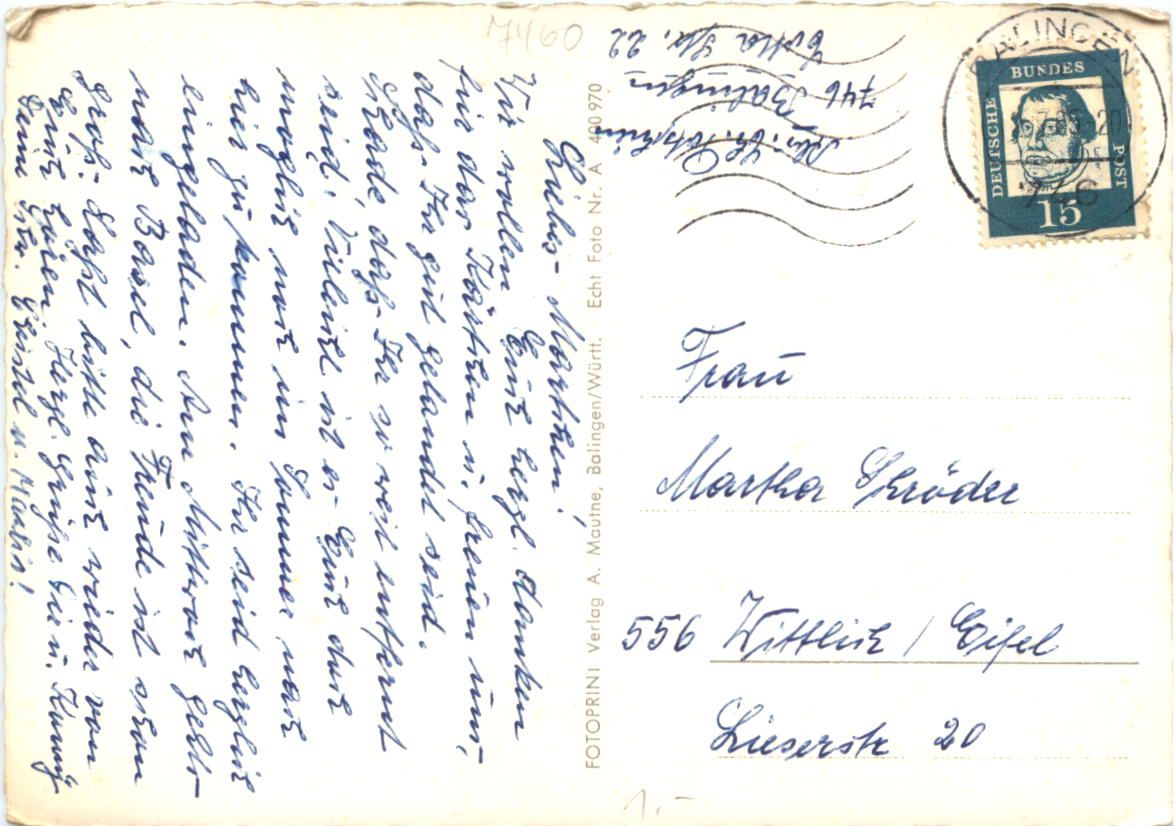 Liebes Marthchen!
Wir wollen Euch herzl. danken
für das Kärtchen u. freuen uns,
daß Ihr gut gelandet seid.
Schade, daß Ihr so weit entfernt
seid. Vielleicht ist es Euch doch
möglich noch im Sommer nach
hier zu kommen. Ihr seid herzlich
eingeladen. Am Mittwoch geht's
nach Basel, die Freude ist schon
groß. Laßt bitte auch wieder von
Euch hören. Herzl. Grüße Dir u.
Deine Christel u.
7460
746 Balingen
Str. 22
FOTOPRINT Verlag A. Mautne, Balingen/Württ. Echt Foto Nr. A 400 970
BALINGEN
746
DEUTSCHE BUNDES POST
15
Frau
Martha Schröder
556 Wittlich / Eifel
Lieserstr 20
1.-